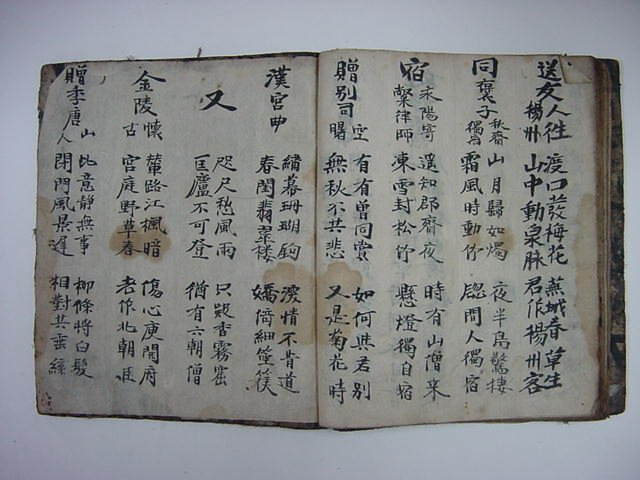 送友人往 渡口發梅花 蕪城春草生
楊州 山中動泉脉 君作楊州客
同褒子秋齋獨宿 山月歸如燭 夜半鳥驚棲
霜風時動竹 窓間人獨宿
宿永陽寄璨律師 遥知郡齋夜 時有山僧来
凍雪封松竹 懸燈獨自宿
贈別司空曙 有有曽同賞 如何與君別
無秋不共悲 又是菊花時
漢宮曲 繡幕珊瑚鉤 深情不肯道
春閨翡翠樓 嬌倚細箜篌
又 咫尺愁風雨 只疑香霧窟
匡廬不可登 猶有六朝僧
金陵懷古 輦路江楓暗 傷心庾開府
宮庭野草春 老作北朝臣
贈李唐山人 此意靜無事 柳條将白髮
閉門風景遲 相對共垂絲